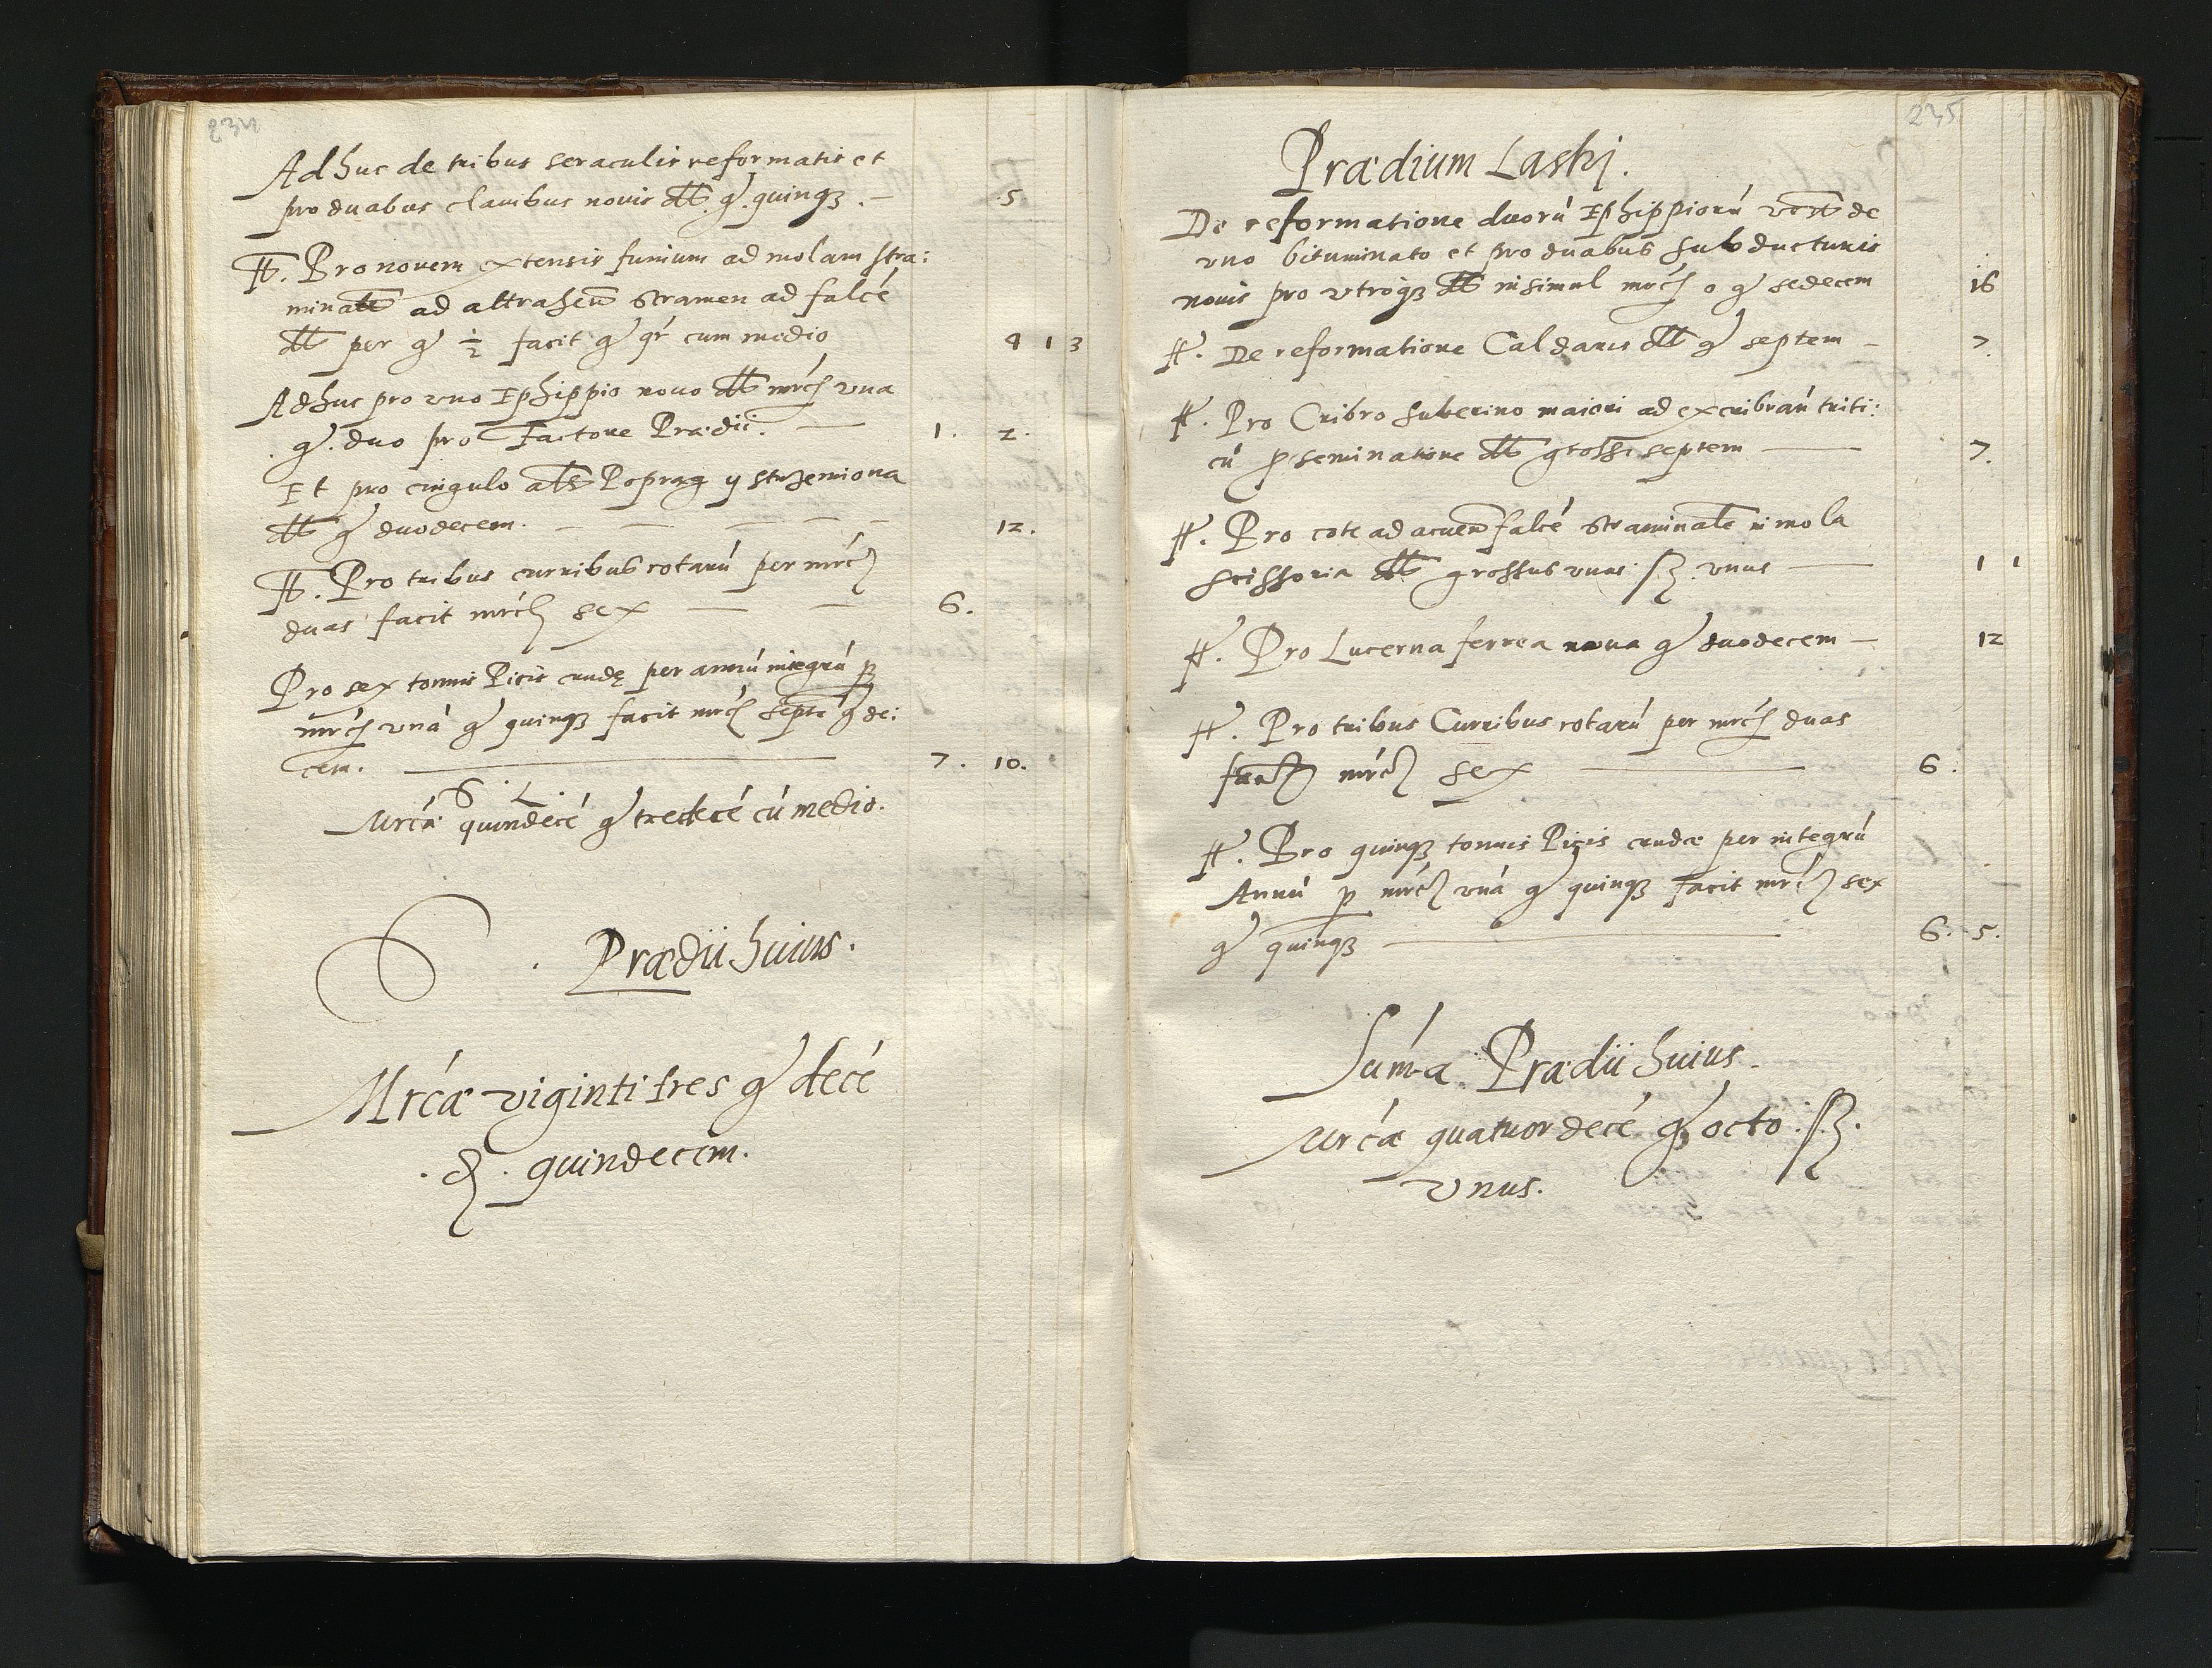 234
Adhuc de tribus seraculis reformatis et
pro duabus clauibus nouis dtt. gr. quinqz. — 5
It. Pro nouem extensis funium ad molam stra:
minalē ad attrahēn stramen ad falcē
dtt per gr ½ facit gr qr cum medio 4 1 3
Adhuc pro vno Ephippio nouo dtt mrcis vna
gr. duo pro Factore Prædii. — 1. 2.
Et pro cingulo als Poprąg y strzemiona
dtt gr duodecem. — — — — — 12.
It. Pro tribus curribus rotarú per mrcs
duas facit mrcs sex — — 6.
Pro sex tonnis Picis crudę per annú integrú p
mrcs vná gr quinqz facit mrcs septē gr de:
cem. — 7. 10.
S. L.
Mrcæ quindecé gr tredecé cú medio.
S. Prædii huius.
Mrcæ viginti tres gr decé
d. quindecem.
235
Prædium Laski.
De reformatione duorú Ephippiorú de
vno bituminato et pro duabus subducturis
nouis pro vtroqz dtt insimul mrcs 0 gr sedecem 16
It. De reformatione Caldaris dtt gr septem — 7.
It. Pro Cribro suberino maiori ad excribran triti:
cú p seminatione dtt grossi septem — 7.
It. Pro cote ad acuen falcé straminalē in mola
scissoria dtt grossus vnus sz. vnus — 1 1
It. Pro Lucerna ferrea noua gr duodecem — 12
It. Pro tribus Curribus rotarú per mrcs duas
mrcs sex — 6.
It. Pro quinqz tonnis Picis crudæ per integrú
Annú p mrcs vná gr quinqz facit mrcs sex
gr quinqz — 6. 5.
Súma Prædii huius.
Mrcæ quatuor decé gr octo. sz.
vnus.